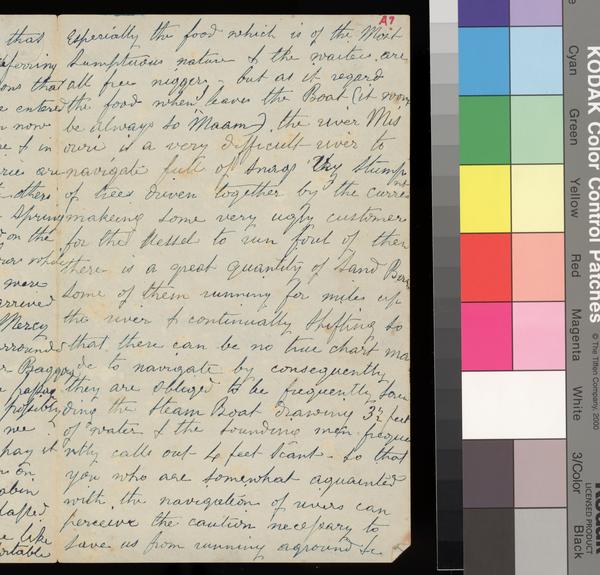 A7
that
eferring
ons that
e entered
n now
e & in
ries are
others
Spring
d on the
our whole
were
arrived
Mercy
urrounds
r Baggage
passag
possibly
we
pay it
on
abin
e like
ortable
Especially the food which is of the Most
Sumptuous nature & the waiters are
all free niggers - but as it regard
the food when I leave the Boat (it wont
be always so Maam), the river Mis
ouri is a very difficult river to
navigate full of snags Viz Stump
of trees driven together by the curre
nt
makeing some very ugly customer
for the Vessel to run foul of then
there is a great quantity of Sand Bars
some of them running for miles up
the river & continually Shifting so
that there can be no true chart ma
de to navigate by consequently
they are obliged to be frequently soun
ding the Steam Boat drawing 3½ feet
of water & the sounding men freque
ntly calls out 4 feet Scant - so that
you who are somewhat aquainted
with the navigation of rivers can
perceive the caution necessary to
save us from running aground &c
KODAK Color Control Patches
© The Tiffen Company, 2000
Cyan
Green
Yellow
Red
Magenta
White
3/Color
Black
Kodak
LICENSED PRODUCT